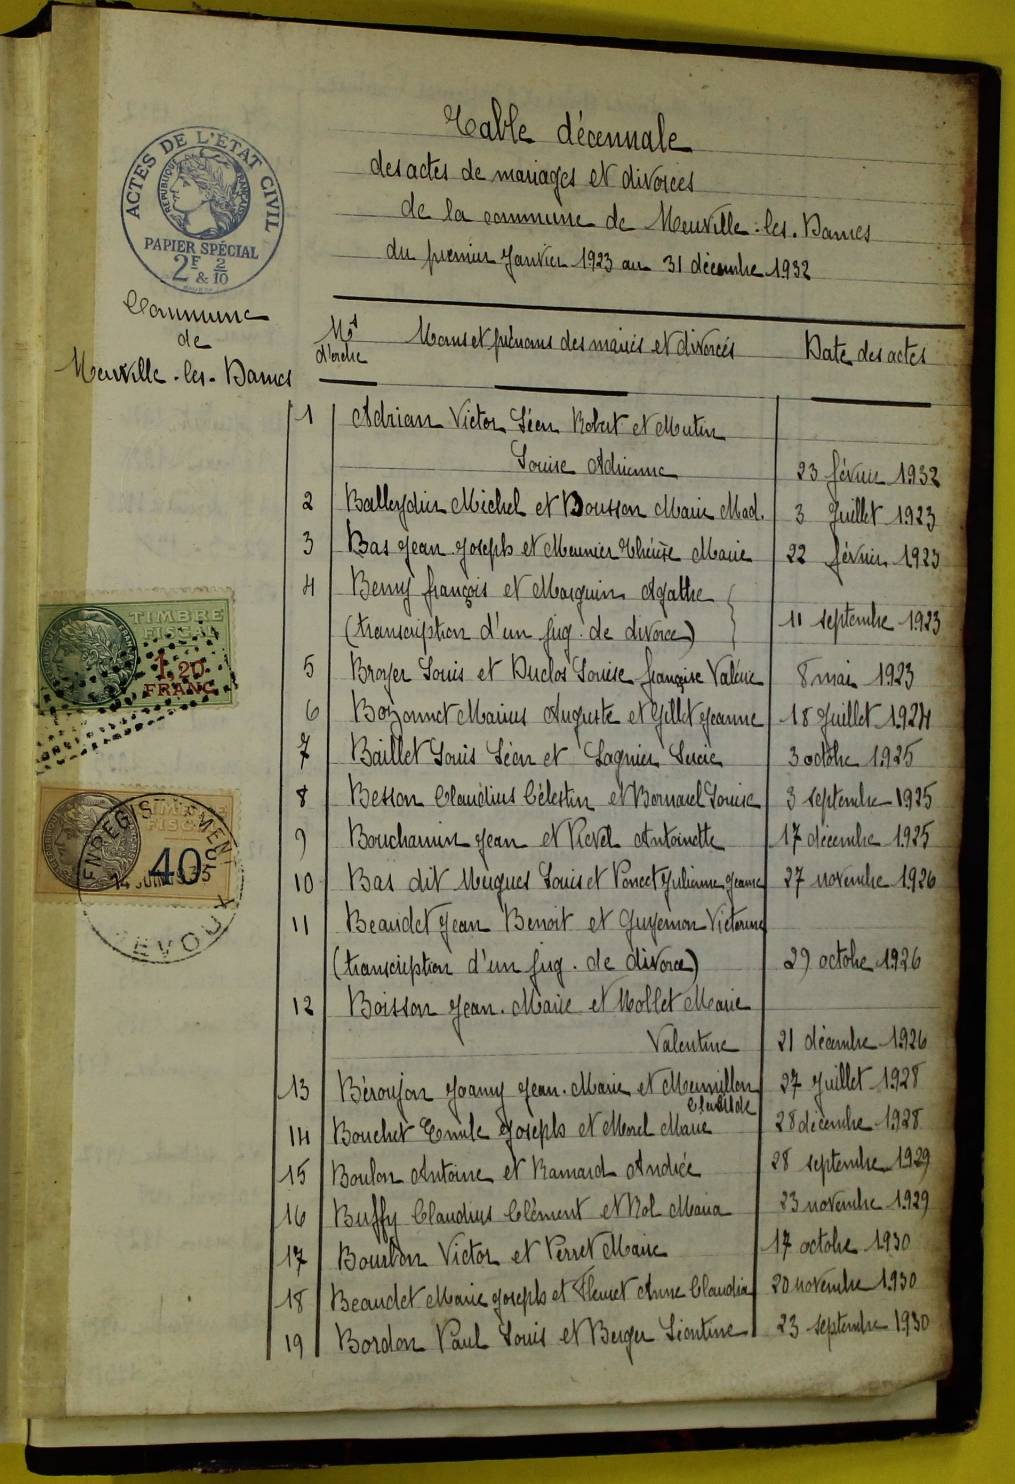 Table décennale
des actes de mariages et divorces
de la commune de Neuville-les-Dames
du premier Janvier 1923 au 31 décembre 1932
ACTES DE L'ÉTAT CIVIL
RÉPUBLIQUE FRANÇAISE
PAPIER SPÉCIAL
2F & 2/10
Commune
de
Neuville-les-Dames
Nos d'ordre Noms et prénoms des mariés et divorcés Date des actes
1 Adrian Victor Léon Robert et Mutin
Louise Adrienne 23 février 1932
2 Balleydier Michel et Bousson Marie Mad. 3 Juillet 1923
3 Bas Jean Joseph et Meunier Thérèse Marie 22 février 1923
4 Berny françois et Marguin Agathe
(transcription d'un jug. de divorce) 11 septembre 1923
5 Broyer Louis et Duclos Louise françoise Valérie 8 mai 1923
6 Bozonnet Marius Auguste et Gillet Jeanne 18 Juillet 1924
7 Baillet Louis Léon et Lagnier Lucie 3 octobre 1925
8 Besson Claudius Célestin et Bornarel Louise 3 septembre 1925
9 Bouchamin Jean et Revel Antoinette 17 décembre 1925
10 Bas dit Nugues Louis et Poncet Julienne Jeanne 27 novembre 1926
11 Beaudet Jean Benoit et Guyennon Victorine
(transcription d'un jug. de divorce) 29 octobre 1926
12 Boisson Jean-Marie et Mollet Marie
Valentine 21 décembre 1926
13 Béroujon Joanny Jean-Marie et Meunillon 27 Juillet 1928
Clotilde
14 Bouchet Emile Joseph et Morel Marie 28 décembre 1928
15 Boulon Antoine et Ramard Andrée 28 septembre 1929
16 Buffy Claudius Clément et Rol Maria 23 novembre 1929
17 Bourbon Victor et Perret Marie 17 octobre 1930
18 Beaudet Marie Joseph et Fleuret Anne Claudia 20 novembre 1930
19 Bordon Paul Louis et Berger Léontine 23 septembre 1930
TIMBRE
FISCAL
1.20
FRANC
TIMBRE
FISCAL
40c
ENREGISTREMENT
14 JUIN 1933
TREVOUX